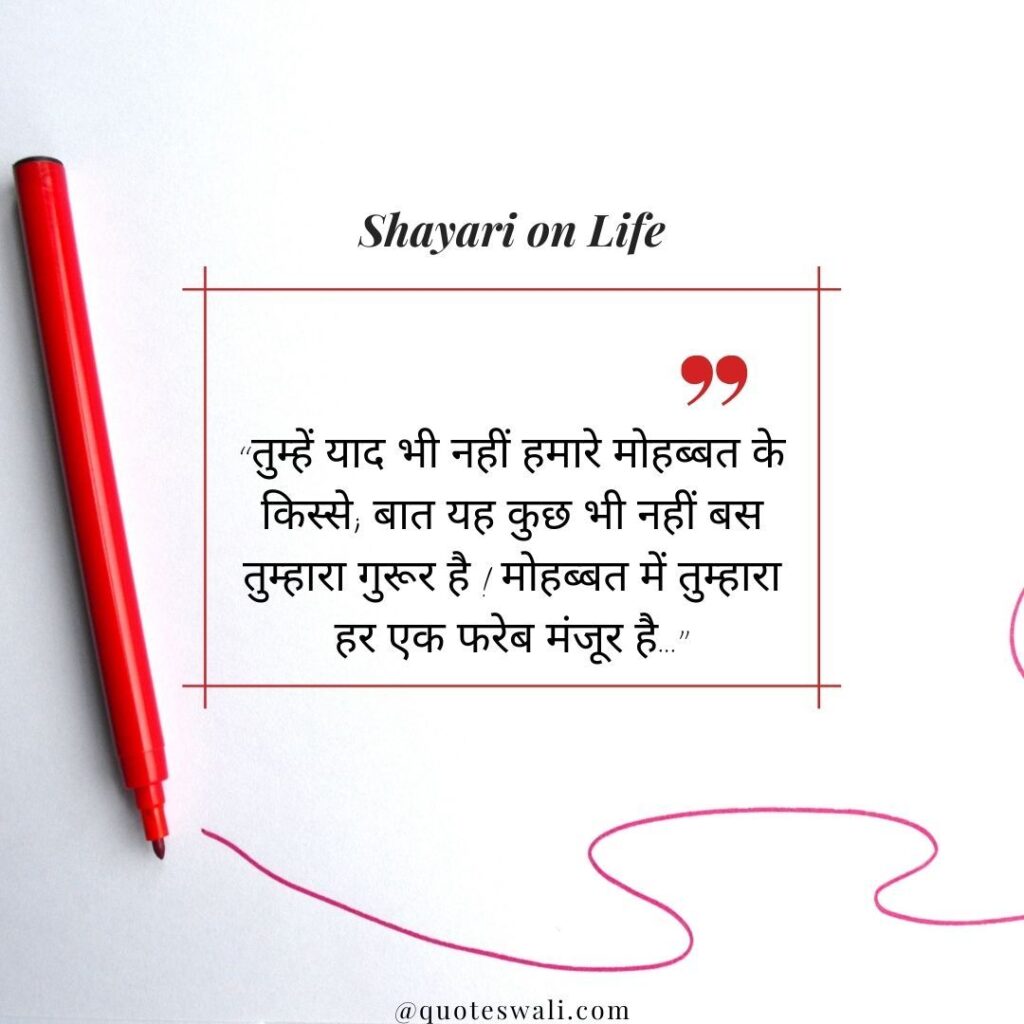 Shayari on Life
”
“तुम्हें याद भी नहीं हमारे मोहब्बत के
किस्से; बात यह कुछ भी नहीं बस
तुम्हारा गुरूर है ! मोहब्बत में तुम्हारा
हर एक फरेब मंजूर है...”
@quoteswali.com